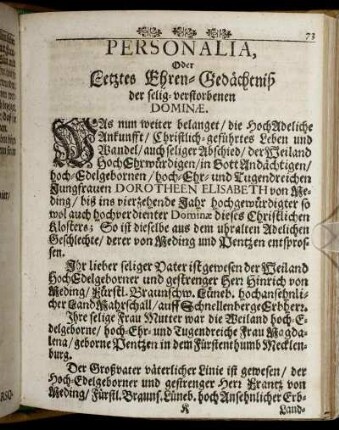 73
PERSONALIA,
Oder
Letztes Ehren-Gedächtniß
der selig-verstorbenen
DOMINÆ.
WAs nun weiter belanget/ die HochAdeliche
Ankunfft/ Christlich-geführtes Leben und
Wandel/ auch seliger Abschied/ der Weiland
HochEhrwürdigen/ in Gott Andächtigen/
hoch-Edelgebornen/ hoch-Ehr- und Tugendreichen
Jungfrauen DOROTHEEN ELISABETH von Me-
ding/ biß ins vierzehende Jahr hochgewürdigter so
wol auch hochverdienter Dominæ dieses Christlichen
Klosters; So ist dieselbe aus dem uhralten Adelichen
Geschlechte/ derer von Meding und Pentzen entspros-
sen.
Ihr lieber seliger Vater ist gewesen der Weiland
HochEdelgeborner und gestrenger Herr Hinrich von
Meding/ Fürstl. Braunschw. Lüneb. hochansehnli-
cher LandMarschall/ auff SchnellenbergeErbherr.
Ihre selige Frau Mutter war die Weiland hoch-E-
delgeborne/ hoch-Ehr- und Tugendreiche Frau Magda-
lena/ geborne Pentzen in dem Fürstenthumb Mecklen-
burg.
Der Großvater väterlicher Linie ist gewesen/ der
Hoch-Edelgeborner und gestrenger Herr Frantz von
Meding/ Fürstl. Brauns. Lüneb. hoch Ansehnlicher Erb-
K Land-